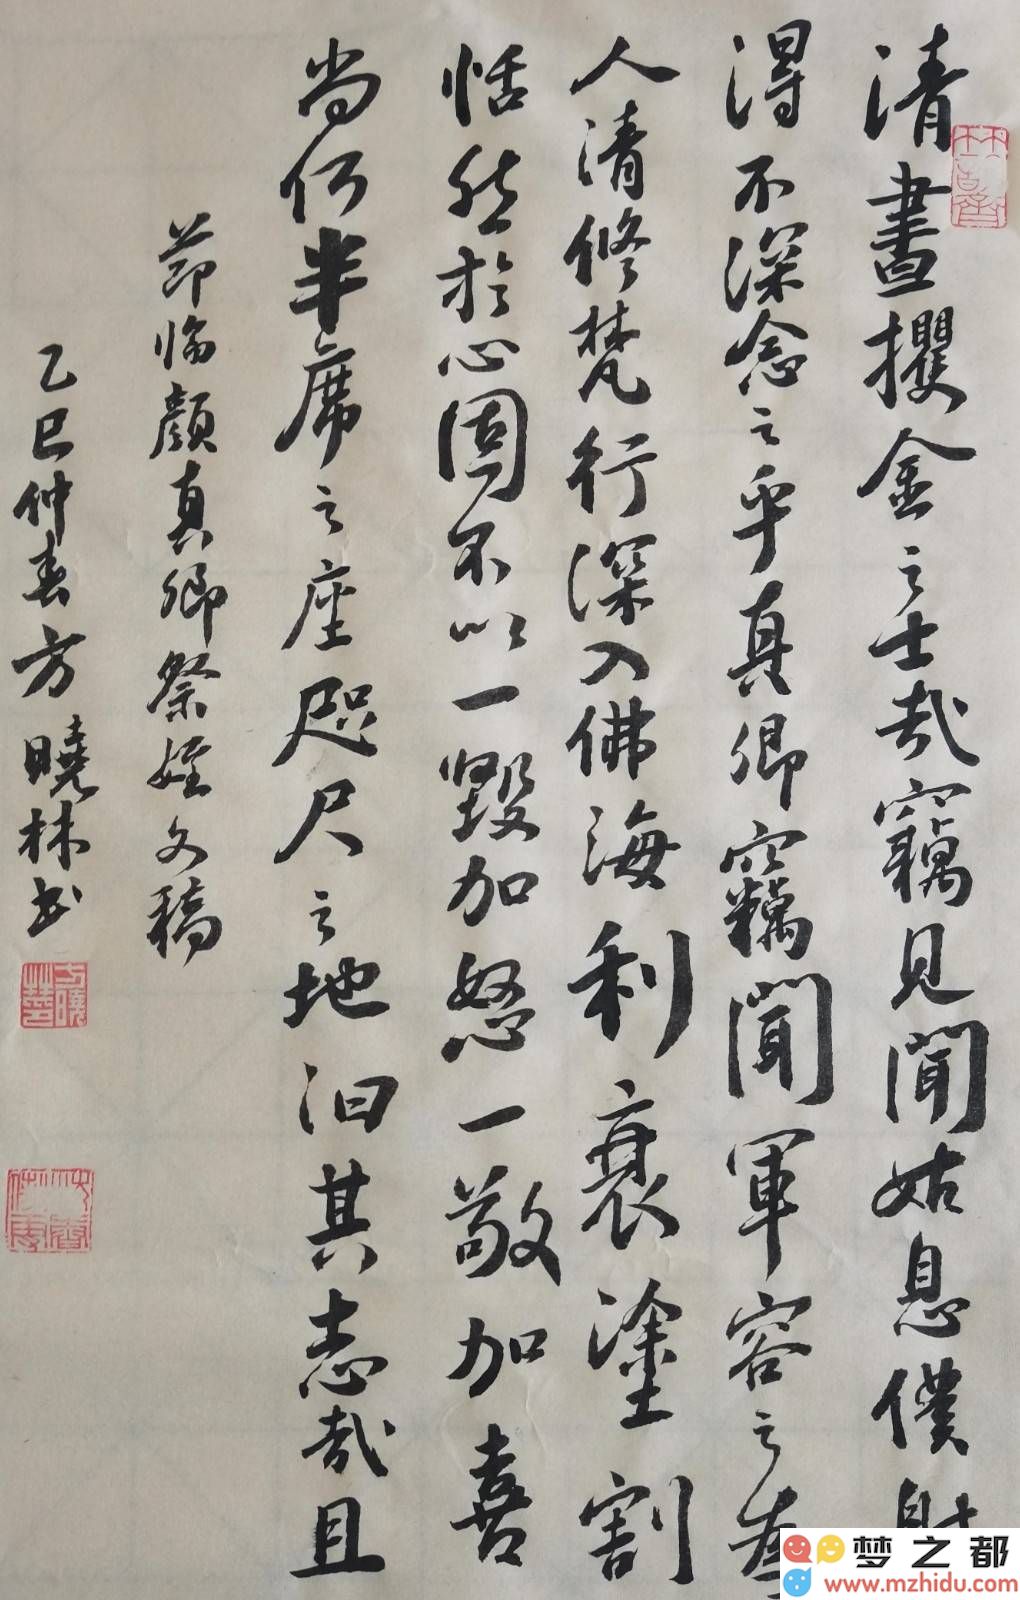 清晝攫金之士哉竊見聞姑息僕射
得不深念之乎真卿竊聞軍容之為
人清修梵行深入佛海利衰塗割
恬然於心固不以一毀加怒一敬加喜
尚何半席之座咫尺之地汩其志哉且
节临顏真卿祭姪文稿
乙巳仲春方曉林书
梦之都
www.mzhidu.com